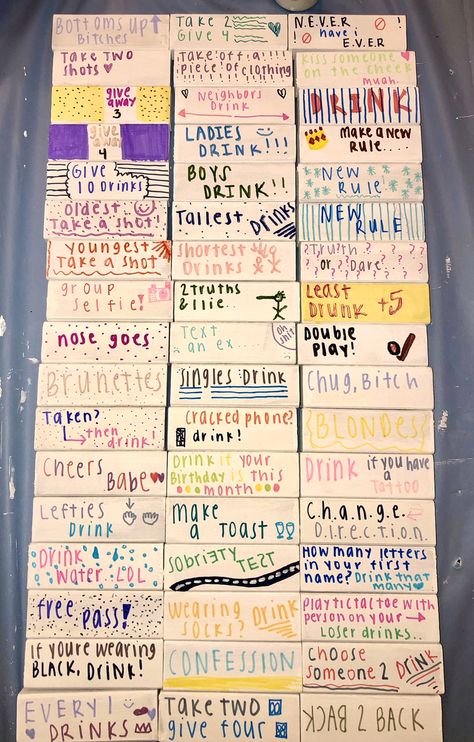 Bottoms up
Bitches
Take 2
Give 4
N.E.V.E.R !
have i
E.V.E.R
Take two
shots
Take off a!!!!
piece of clothing
Kiss someone
on the cheek
muah.
give
away
3
Neighbors
Drink
DRINK
give
away
4
LADIES
DRINK!!!
make a new
rule...
Give
10 Drinks
BOYS
DRINK!!
New
Rule
oldest
Take a shot!
Tallest Drinks
NEW
RULE
youngest
Take a shot
shortest
Drinks
?Truth?
or Dare
group
selfie!
2 Truths
& 1 lie...
Least
Drunk +5
nose goes
Text
an ex...
oh
shit
Double
Play!
Brunettes
Singles Drink
Chug, Bitch
Taken?
then
drink!
cracked phone?
drink!
{BLONDES}
Cheers
Babe
Drink if your
Birthday is this
month
Drink if you have
a
Tattoo
Lefties
Drink
make
a Toast
C.h.a.n.g.e.
D.i.r.e.c.t.i.o.n.
Drink
Water LOL
sobriety TEST
How many letters
in your first
name? Drink that
many
free pass!
wearing
socks? Drink
Play tic tac toe with
person on your
Loser drinks..
If you're wearing
BLACK, DRINK!
CONFESSION
choose
someone 2 DRINK
EVERY 1
DRINKS
Take two
give four
BACK 2 BACK